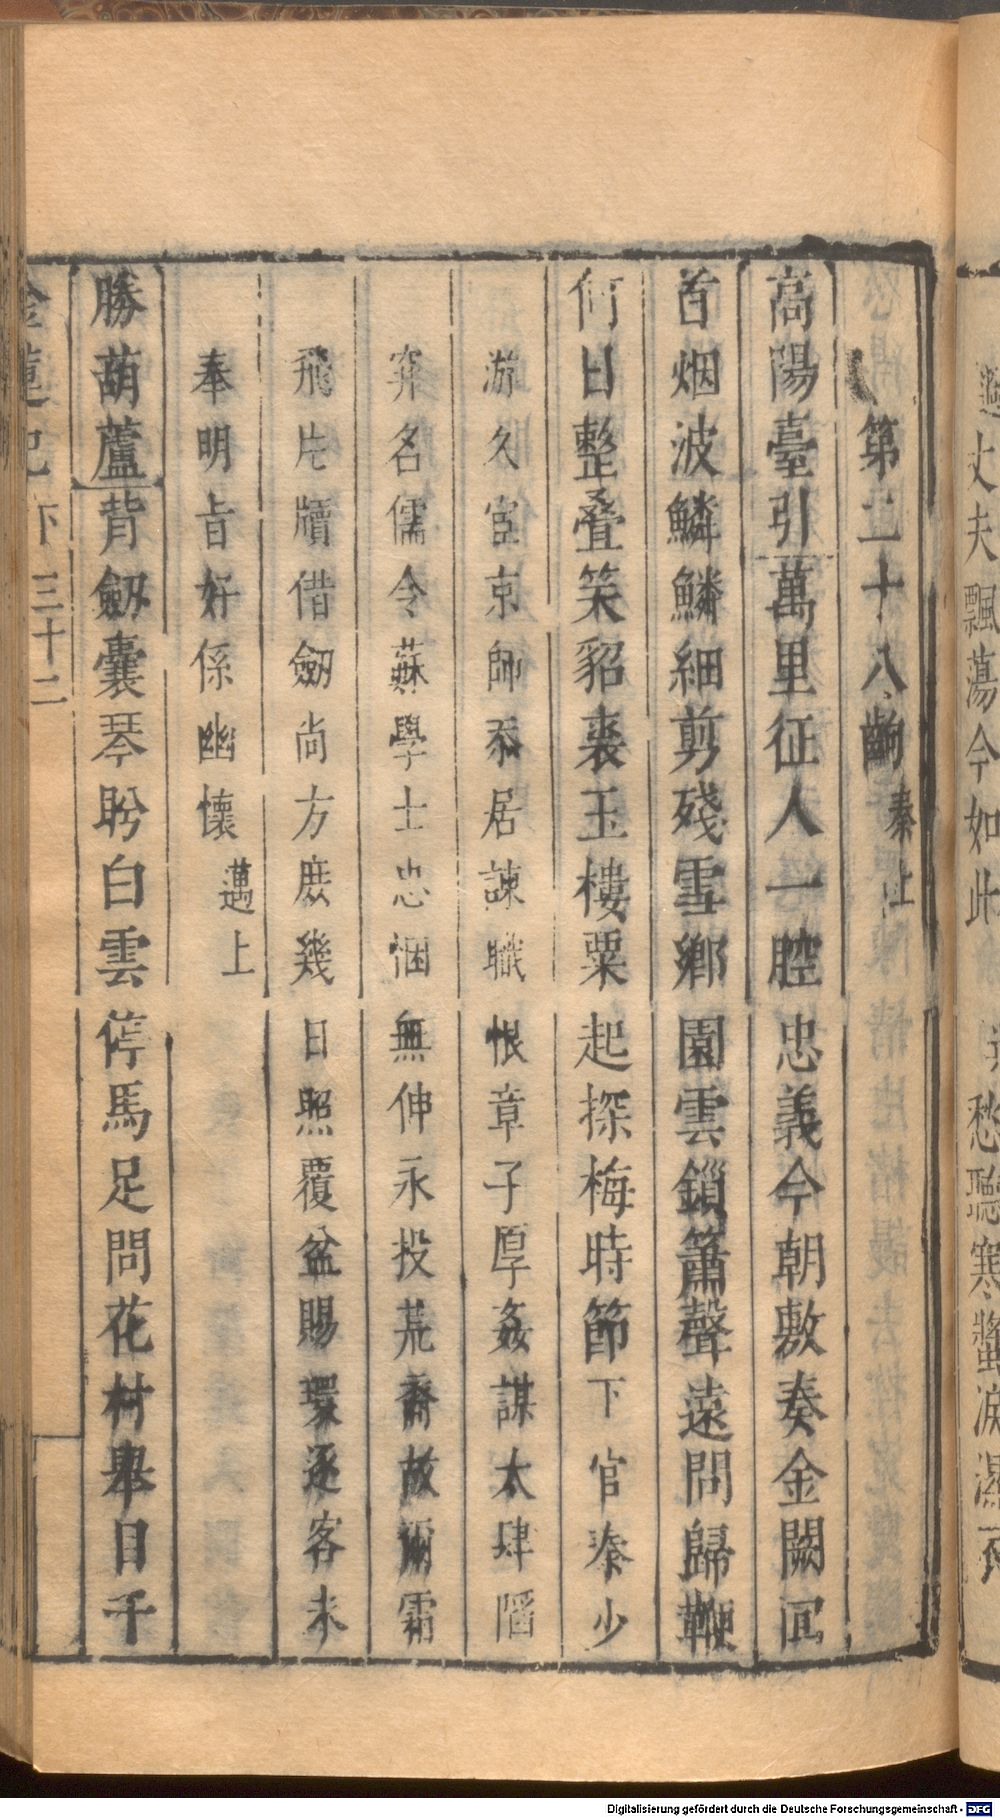 第二十八齣 秦上
高陽臺引 萬里征人一腔忠義今朝敷奏金闕囘
首烟波鱗鱗細剪殘雪鄉園雲鎖簫聲遠問歸鞭
何日整叠笶貂裘玉樓粟起探梅時節 下官秦少
游久宦京師忝居諫職恨章子厚姦謀太肆陷
穽名儒令蘇學士忠悃無伸永投荒裔故瀰霜
飛片牘借劒尚方庶幾日照覆盆賜環逐客未
奉明旨好係幽懷 邁上
勝葫蘆 背劒囊琴盻白雲停馬足問花村舉目千
金蓮記 下 三十二
丈夫飄蕩今如此
愁聽寒螿淚濕衣
Digitalisierung gefördert durch die Deutsche Forschungsgemeinschaft - DFG